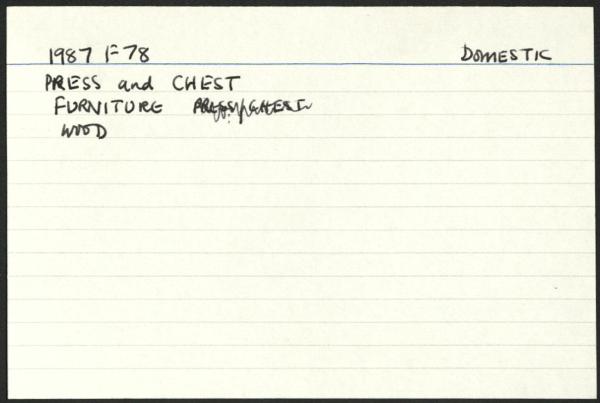 1987 F 78 DOMESTIC
PRESS and CHEST
FURNITURE PRESS/CHEST
WOOD